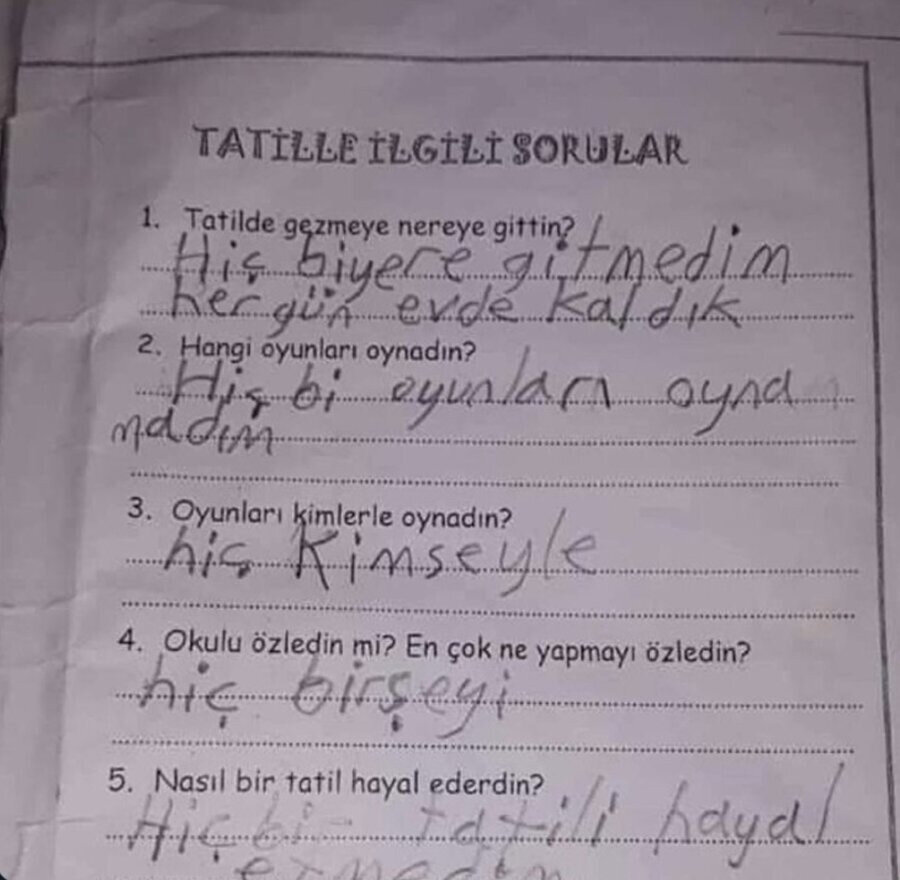 TATİLLE İLGİLİ SORULAR
1. Tatilde gezmeye nereye gittin?
Hiç biyere gitmedim
her gün evde kaldık
2. Hangi oyunları oynadın?
Hiç bi oyunları oyna
madım
3. Oyunları kimlerle oynadın?
hiç Kimseyle
4. Okulu özledin mi? En çok ne yapmayı özledin?
hiç birşeyi
5. Nasıl bir tatil hayal ederdin?
Hiç bir tatili hayal
etmedim